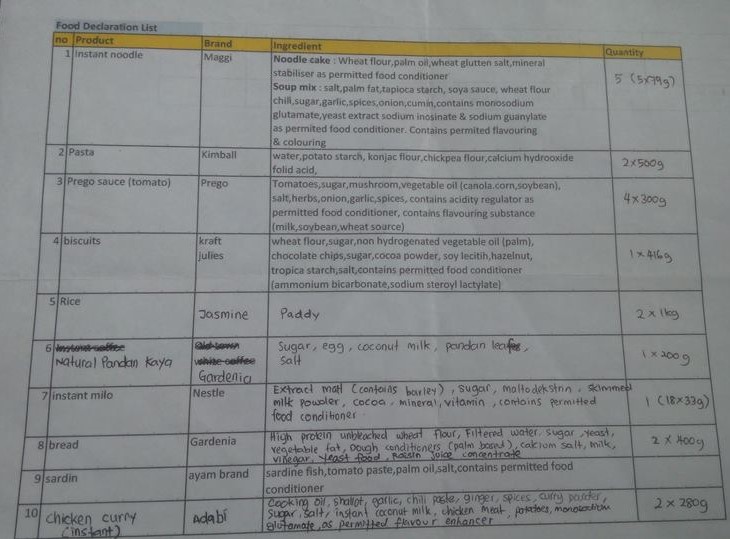 Food Declaration List
no Product Brand Ingredient Quantity
1 Instant noodle Maggi Noodle cake : Wheat flour,palm oil,wheat glutten salt,mineral
stabiliser as permitted food conditioner
Soup mix : salt,palm fat,tapioca starch, soya sauce, wheat flour
chill,sugar,garlic,spices,onion,cumin,contains monosodium
glutamate,yeast extract sodium inosinate & sodium guanylate
as permited food conditioner. Contains permited flavouring
& colouring
5 (5x79g)
2 Pasta Kimball water,potato starch, konjac flour,chickpea flour,calcium hydrooxide
folid acid,
2x500g
3 Prego sauce (tomato) Prego Tomatoes,sugar,mushroom,vegetable oil (canola.corn,soybean),
salt,herbs,onion,garlic,spices, contains acidity regulator as
permitted food conditioner, contains flavouring substance
(milk,soybean,wheat source)
4x300g
4 biscuits kraft wheat flour,sugar,non hydrogenated vegetable oil (palm),
julies chocolate chips,sugar,cocoa powder, soy lecitih,hazelnut,
tropica starch,salt,contains permitted food conditioner
(ammonium bicarbonate,sodium steroyl lactylate)
1x416g
5 Rice Jasmine Paddy 2x1kg
6 Natural Pandan Kaya Gardenia Sugar, egg, coconut milk, pandan
salt
1x200g
7 instant milo Nestle Extract malt (contains barley), sugar, maltodekstrin, skimmed
milk powder, cocoa, mineral, vitamin, contains permitted
food conditioner.
1 (18x33g)
8 bread Gardenia High protein unbleached wheat flour, Filtered water. sugar, yeast,
vegetable fat, Dough conditioners (palm based), calcium salt, milk,
vinegar, yeast food, Raisin juice concentrate
2x400g
9 sardin ayam brand sardine fish,tomato paste,palm oil,salt,contains permitted food
conditioner
10 chicken curry (instant) Adabi Cooking oil, shallot, garlic, chili paste, ginger, spices, curry powder,
sugar, salt, instant coconut milk, chicken meat, potatoes, monosodium
glutamate, as permitted flavour enhancer
2x280g